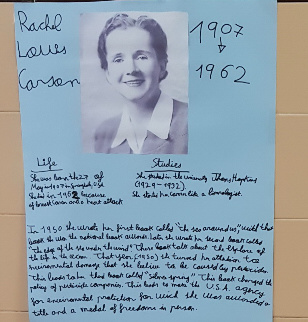 Rachel
Louies
Carson
1907
1962
Life
Studies
She was born the 27 of
May
She died in 1962 because
of breast cancer and a heart attack
She studied in the university Jhons Hopkins
(1929 - 1932).
She stards her carrer like a
In 1950 she wrote her first book called "the sea around us", with that
book she won the national book awards. Late she wrote her second book called
"The edge of the sea under the wind". These books talk about the explore of
the life in the ocean. That year (1950) she turned his attention to
enviromental damage that she belive to be caused by pesticides.
This leads to her third book called "silent spring". This book changed the
policy of pesticide companies. This leads to make the U.S.A. agency
for enviromental protection for wich she was awarded a
title and a medal of freedom is person.